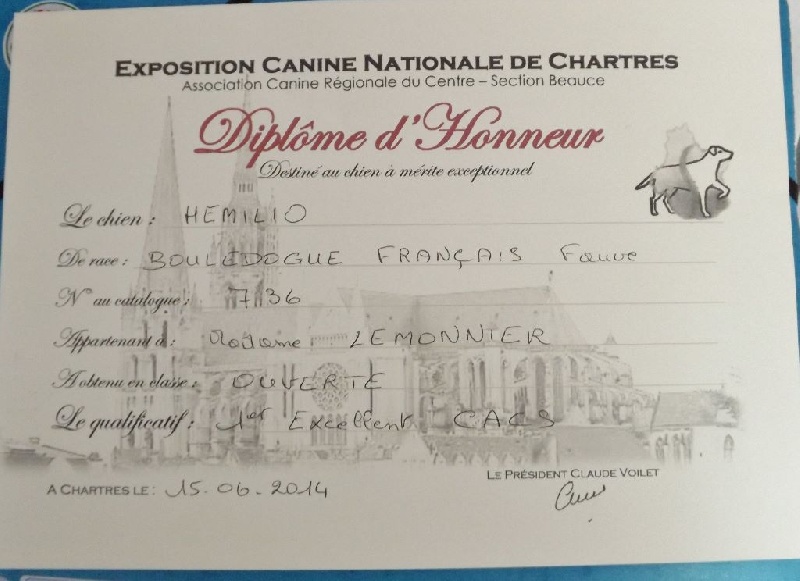 EXPOSITION CANINE NATIONALE DE CHARTRES
Association Canine Régionale du Centre – Section Beauce
Diplôme d'Honneur
Destiné au chien à mérite exceptionnel
Le chien : HEMILIO
De race : BOULEDOGUE FRANÇAIS Fauve
N° au catalogue : 736
Appartenant à : Madame LEMONNIER
A obtenu en classe : OUVERTE
Le qualificatif : 1er Excellent CACS
LE PRÉSIDENT CLAUDE VOILET
A CHARTRES LE : 15.06.2014